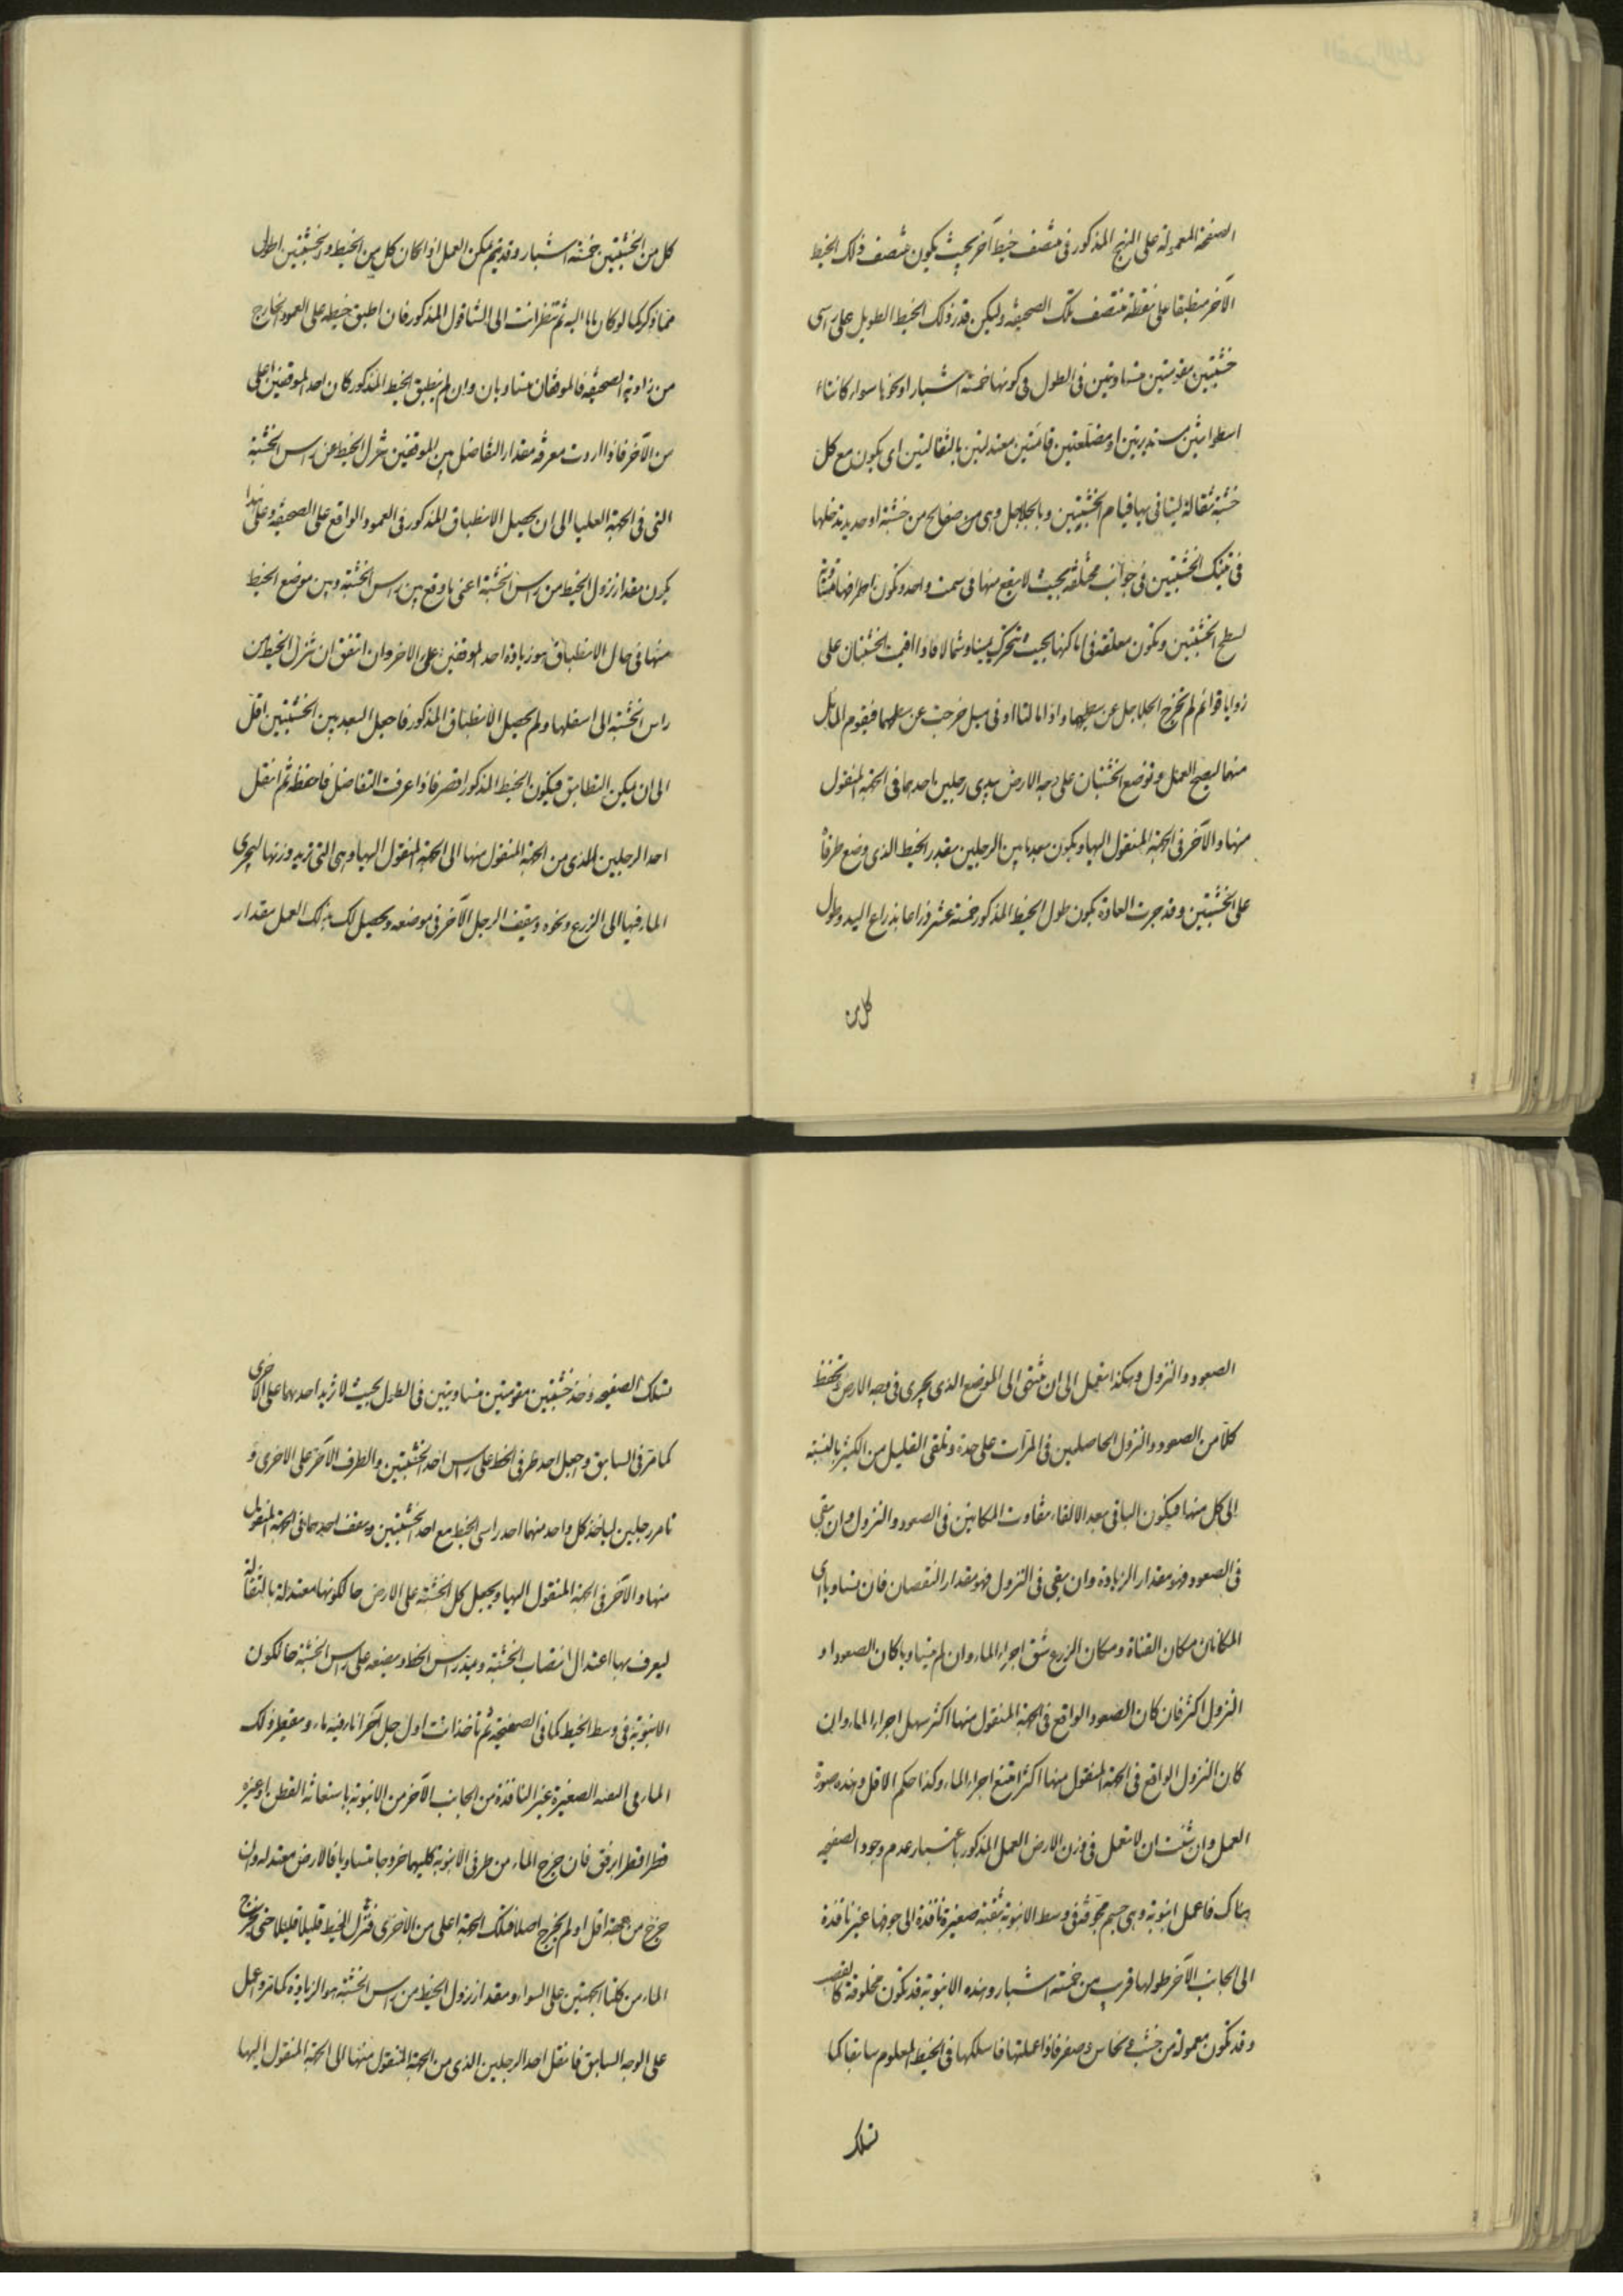 الصفحة المعمولة على النهج المذكور فى منتصف خيط آخر بحيث يكون منتصف ذلك الخيط
الآخر منطبقا على نقطة منتصف تلك الصحيفة وليكن قدر ذلك الخيط الطويل على راسى
خشبتين مقومتين متساويتين فى الطول فى كونها خمسة اشبار او نحوها سواء كانتا
اسطوانتين مستديرتين او مضلعتين قائمتين معتدلتين بالثقالتين اى يكون مع كل
خشبة ثقالة ليتا فى بها قيام الخشبتين وبالجلاجل وهى من صفايح من خشبة او حديد تدخلها
فى تينك الخشبتين فى جوانب مختلفة بحيث لا يقع منها فى سمت واحد وتكون اطرافها مساوية
لسطح الخشبتين وتكون معلقة فى اماكنها بحيث تتحرك يمينا وشمالا فاذا اقيمت الخشبتان على
زوايا قوائم لم تخرج الجلاجل عن سطحهما واذا مالتا او فى ميل خرجت عن سطحهما فيقوم المايل
منهما ليصح العمل وتوضع الخشبتان على وجه الارض بيدى رجلين احدهما فى الجهة المنقول
منها والآخر فى الجهة المنقول اليها ويكون بعد ما بين الرجلين بقدر الخيط الذى وضع طرفاه
على الخشبتين وقد جرت العادة بكون طول الخيط المذكور خمسة عشر ذراعا بذراع اليد وطول
كل من
كل من الخشبتين خمسة اشبار وقد يتم يمكن العمل اذا كان كل من الخيط والخشبتين اطول
مما ذكر كما لو كان لها اليه ثم تنظر انت الى الشاقول المذكور فان اطبق خيطه على العمود الخارج
من زاوية الصحيفة فالموقفان متساويان وان لم ينطبق الخيط المذكور كان احد الموقفين اعلى
من الآخر فاذا اردت معرفة مقدار التفاضل بين الموقفين تنزل الخيط عن راس الخشبة
التى فى الجهة العليا الى ان يحصل الانطباق المذكور فى العمود الواقع على الصحيفة وعلى هذا
يكون مقدار نزول الخيط من راس الخشبة اعنى ما وقع بين راس الخشبة وبين موضع الخيط
منها فى حال الانطباق هو زيادة احد الموقفين على الاخر وان اتفق ان تنزل الخيط من
راس الخشبة الى اسفلها ولم يحصل الانطباق المذكور فاجعل البعد بين الخشبتين اقل
الى ان يمكن التطابق فيكون الخيط المذكور اقصر فاذا عرفت التفاضل فاحفظه ثم انقل
احد الرجلين الذى من الجهة المنقول منها الى الجهة المنقول اليها وهى التى تريد وزنها ليجرى
الماء فيها الى الزرع ونحوه ويقف الرجل الآخر فى موضعه ويحصل لك بذلك العمل مقدار
الصعود والنزول وهكذا تعمل الى ان تنتهى الى الموضع الذى يجرى فى وجه الارض وتحفظ
كلا من الصعود والنزول الحاصلين فى المرات على حدة وتلقى القليل من الكثير بالنسبة
الى كل منها فيكون الباقى بعد الالقاء تفاوت المكانين فى الصعود والنزول وان بقى
فى الصعود فهو مقدار الزيادة وان بقى فى النزول فهو مقدار النقصان فان تساويا اى
المكانان مكان القناة ومكان الزرع شق اجراء الماء وان لم يتساويا كان الصعود او
النزول اكثر فان كان الصعود الواقع فى الجهة المنقول منها اكثر سهل اجراء الماء وان
كان النزول الواقع فى الجهة المنقول منها اكثر امتنع اجراء الماء وكذا حكم الاقل وهذه صورة
العمل وان شئت ان لا تعمل فى وزن الارض العمل المذكور باعتبار عدم وجود الصفيحة
هناك فاعمل انبوبة وهى جسم مجوف فى وسط الانبوبة ثقبة صغيرة نافذة الى جوفها غير نافذة
الى الجانب الآخر طولها قريب من خمسة اشبار وهذه الانبوبة قد تكون مخلوقة كالقصب
وقد تكون معمولة من خشب او نحاس او صفر فاذا عملتها فاسلكها فى الخيط المعلوم سابقا كما
تسلك
تسلك الصفيحة وخذ خشبتين مقومتين متساويتين فى الطول بحيث لا تزيد احدهما على الاخرى
كما مر فى السابق واجعل احد طرفى الخط على راس احد الخشبتين والطرف الآخر على الاخرى و
تامر رجلين لياخذ كل واحد منهما احد راسى الخيط مع احد الخشبتين ويقف احدهما فى الجهة المنقول
منها والآخر فى الجهة المنقول اليها ويجعل كل الخشبة على الارض حالكونها معتدلة بالثقالة
ليعرف بها اعتدال انتصاب الخشبة ويمد راس الخط ويضعه على راس الخشبة حالكون
الانبوبة فى وسط الخيط كما فى الصفيحة ثم تاخذ انت او رجل آخر اناء فيه ماء ويقطر ذلك
الماء فى الثقبة الصغيرة غير النافذة من الجانب الآخر من الانبوبة باستعانة القطن او غيره
قطرا قطرا برفق فان خرج الماء من طرفى الانبوبة كليهما خروجا متساويا فالارض معتدلة وان
خرج من جهة اقل او لم يخرج اصلا فتلك الجهة اعلى من الآخرى فتنزل الخيط قليلا قليلا حتى يخرج
الماء من كلتا الجهتين على السواء ومقدار نزول الخيط من راس الخشبة هو الزيادة كما مر واعمل
على الوجه السابق فانقل احد الرجلين الذى من الجهة المنقول منها الى الجهة المنقول اليها